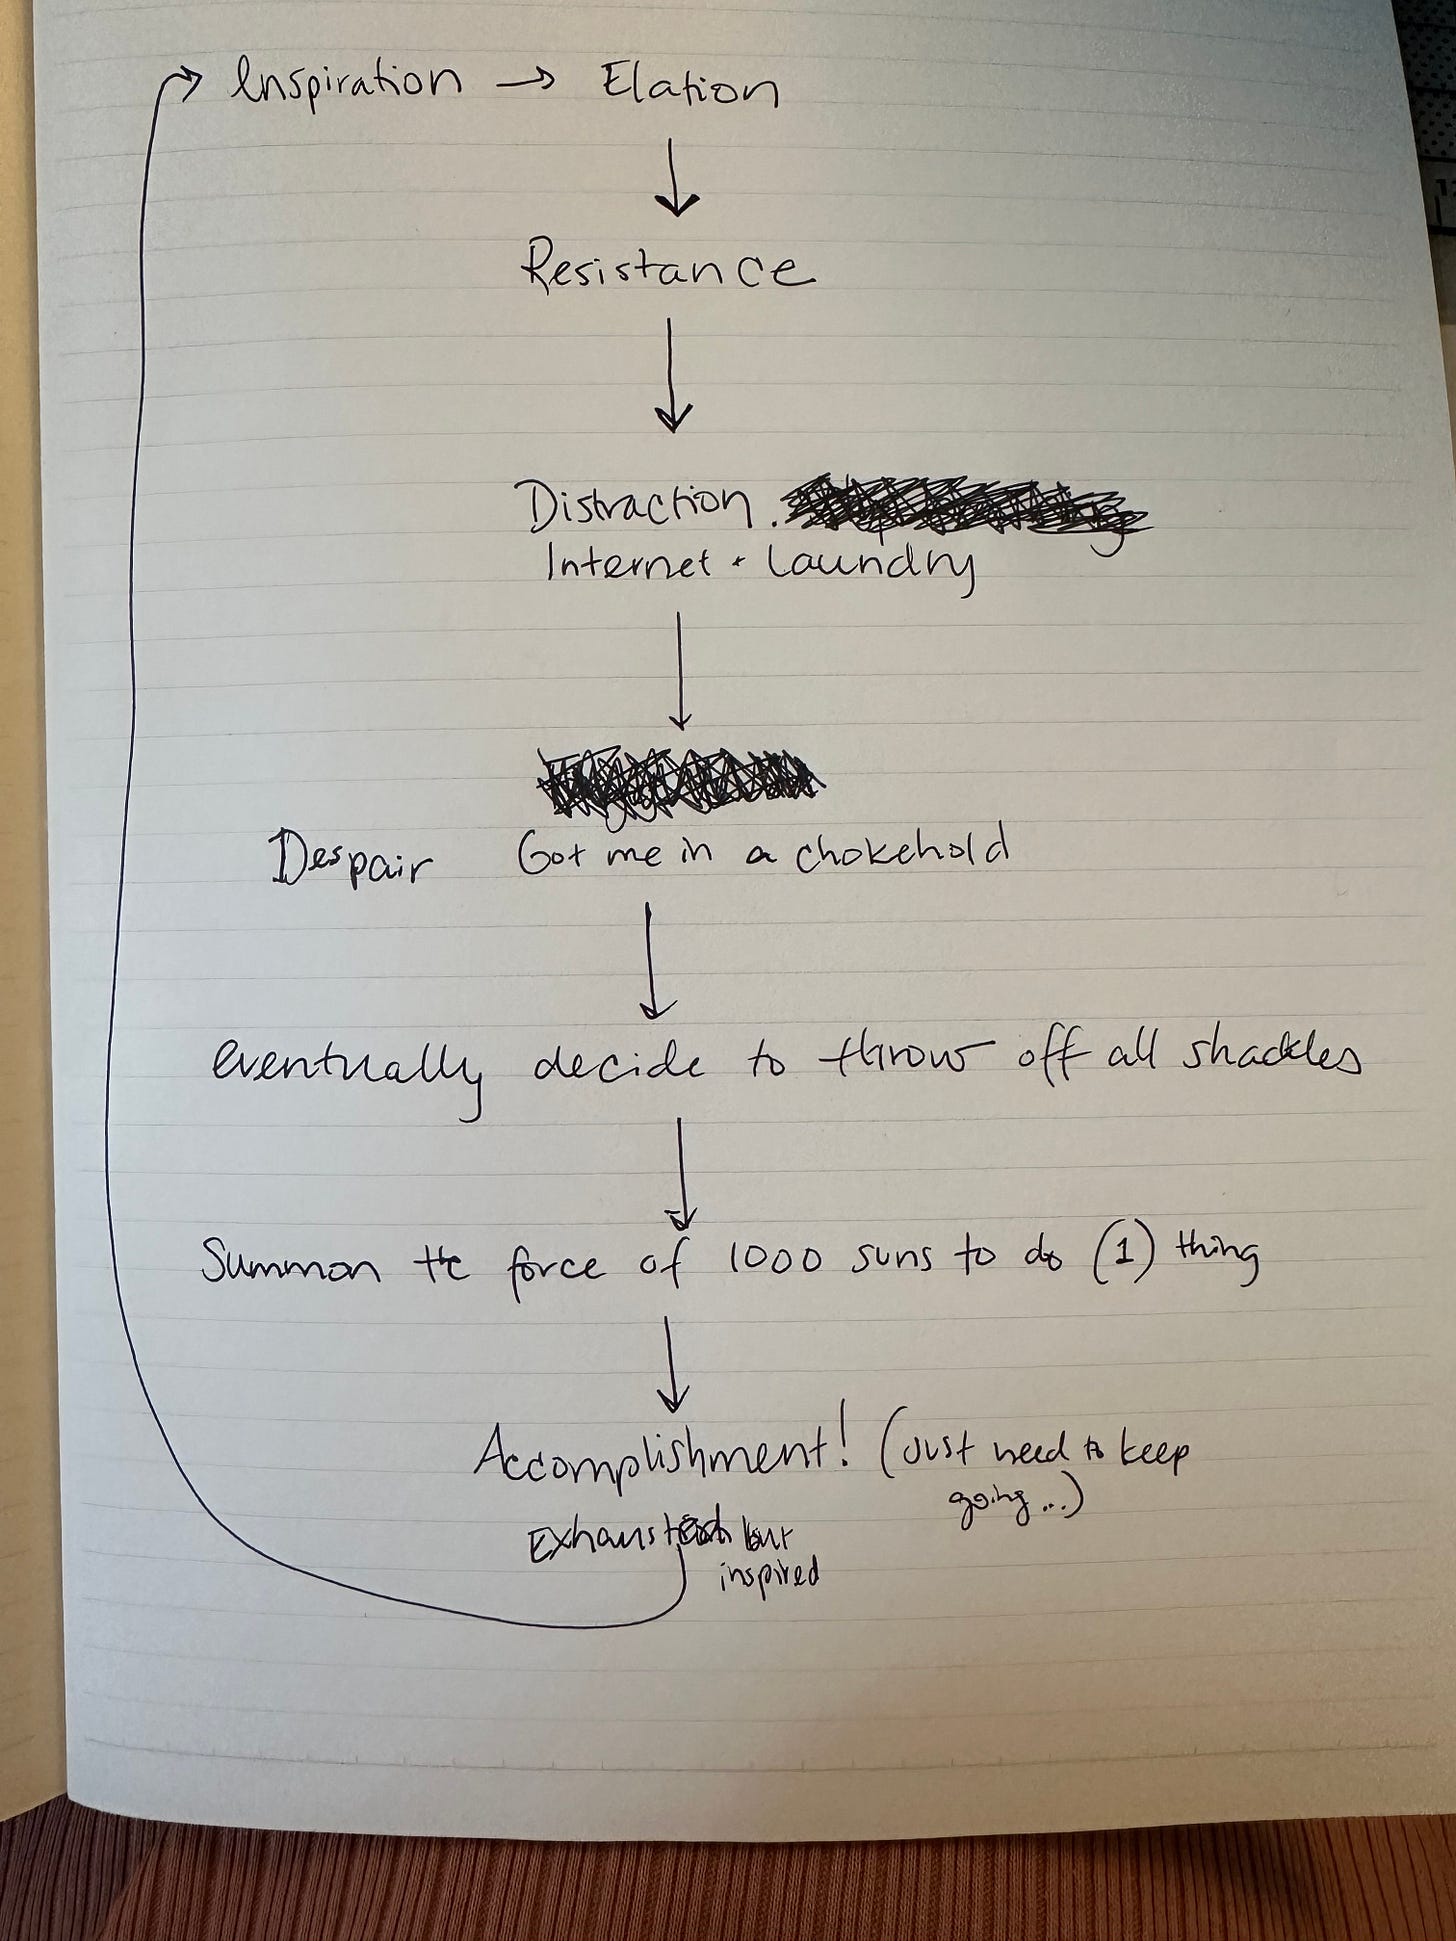 → Inspiration → Elation
Resistance
Distraction.
Internet + Laundry
Despair Got me in a chokehold
eventually decide to throw off all shackles
Summon the force of 1000 suns to do (1) thing
Accomplishment! (Just need to keep
going...)
Exhausted but
inspired